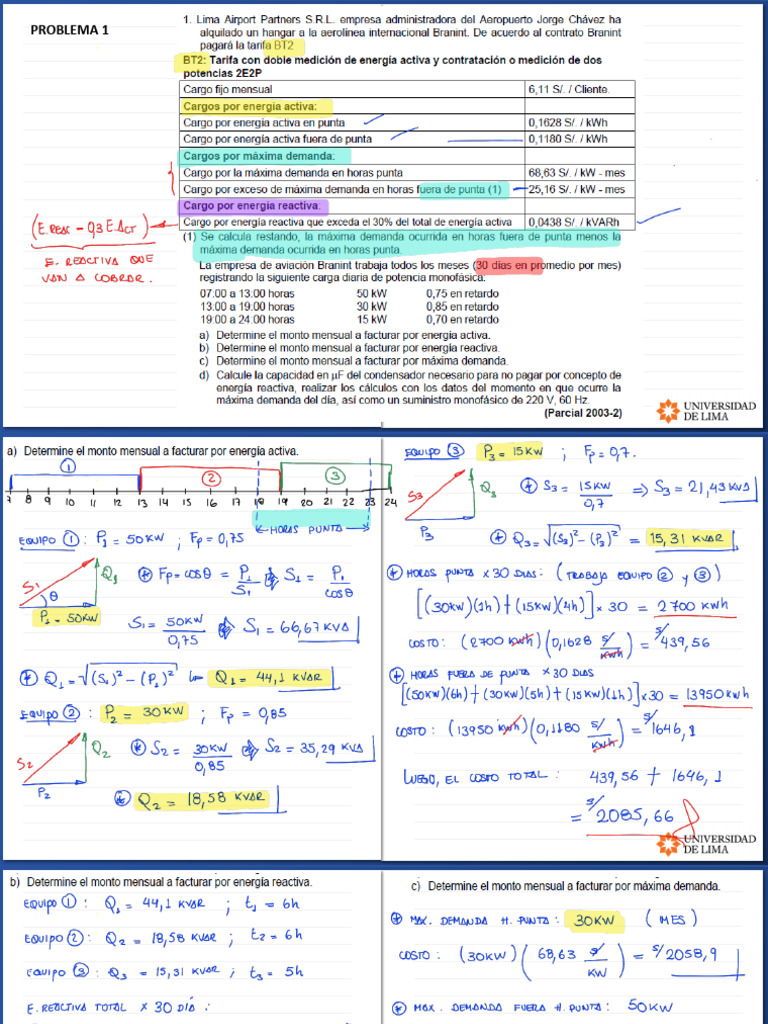 PROBLEMA 1
1. Lima Airport Partners S.R.L. empresa administradora del Aeropuerto Jorge Chávez ha
alquilado un hangar a la aerolínea internacional Branint. De acuerdo al contrato Branint
pagará la tarifa BT2
BT2: Tarifa con doble medición de energía activa y contratación o medición de dos
potencias 2E2P
Cargo fijo mensual 6,11 S/. / Cliente.
Cargos por energía activa:
Cargo por energía activa en punta 0,1628 S/. / kWh
Cargo por energía activa fuera de punta 0,1180 S/. / kWh
Cargos por máxima demanda:
Cargo por la máxima demanda en horas punta 68,63 S/. / kW - mes
Cargo por exceso de máxima demanda en horas fuera de punta (1) 25,16 S/. / kW - mes
Cargo por energía reactiva:
Cargo por energía reactiva que exceda el 30% del total de energía activa 0,0438 S/. / kVARh
(E.REAC - 0,3 E.ACT)
E. REACTIVA QUE
VAN A COBRAR.
(1) Se calcula restando, la máxima demanda ocurrida en horas fuera de punta menos la
máxima demanda ocurrida en horas punta.
La empresa de aviación Branint trabaja todos los meses (30 días en promedio por mes)
registrando la siguiente carga diaria de potencia monofásica:
07:00 a 13:00 horas 50 kW 0,75 en retardo
13:00 a 19:00 horas 30 kW 0,85 en retardo
19:00 a 24:00 horas 15 kW 0,70 en retardo
a) Determine el monto mensual a facturar por energía activa.
b) Determine el monto mensual a facturar por energía reactiva.
c) Determine el monto mensual a facturar por máxima demanda.
d) Calcule la capacidad en µF del condensador necesario para no pagar por concepto de
energía reactiva, realizar los cálculos con los datos del momento en que ocurre la
máxima demanda del día, así como un suministro monofásico de 220 V, 60 Hz.
(Parcial 2003-2)
UNIVERSIDAD
DE LIMA
a) Determine el monto mensual a facturar por energía activa.
1 2 3
7 8 9 10 11 12 13 14 15 16 17 18 19 20 21 22 23 24
HORAS PUNTA
EQUIPO 1: P1 = 50KW ; FP = 0,75
S1 Q1 θ P1 = 50KW
FP = COSθ = P1/S1 S1 = P1/COSθ
S1 = 50KW/0,75 S1 = 66,67 KVA
Q1 = √(S1)² - (P1)² Q1 = 44,1 KVAR
EQUIPO 2: P2 = 30KW ; FP = 0,85
S2 Q2 P2
S2 = 30KW/0,85 S2 = 35,29 KVA
Q2 = 18,58 KVAR
EQUIPO 3 P3 = 15KW ; FP = 0,7.
S3 Q3 P3
S3 = 15KW/0,7 ⇒ S3 = 21,43 KVA
Q3 = √(S3)² - (P3)² = 15,31 KVAR
HORAS PUNTA × 30 DIAS: (TRABAJA EQUIPO 2 Y 3)
[(30KW)(1h) + (15KW)(4h)] × 30 = 2700 KWh
COSTO: (2700 KWh)(0,1628 S/ / KWh) = S/ 439,56
HORAS FUERA DE PUNTA × 30 DIAS
[(50KW)(6h) + (30KW)(5h) + (15KW)(1h)] × 30 = 13950 KWh
COSTO: (13950 KWh)(0,1180 S/ / KWh) = S/ 1646,1
LUEGO, EL COSTO TOTAL: 439,56 + 1646,1
= S/ 2085,66
UNIVERSIDAD
DE LIMA
b) Determine el monto mensual a facturar por energía reactiva.
EQUIPO 1: Q1 = 44,1 KVAR ; t1 = 6h
EQUIPO 2: Q2 = 18,58 KVAR ; t2 = 6h
EQUIPO 3: Q3 = 15,31 KVAR ; t3 = 5h
E. REACTIVA TOTAL × 30 DÍA :
c) Determine el monto mensual a facturar por máxima demanda.
MAX. DEMANDA H. PUNTA: 30KW (MES)
COSTO: (30KW)(68,63 S/ / KW) = S/ 2058,9
MAX. DEMANDA FUERA H. PUNTA: 50KW